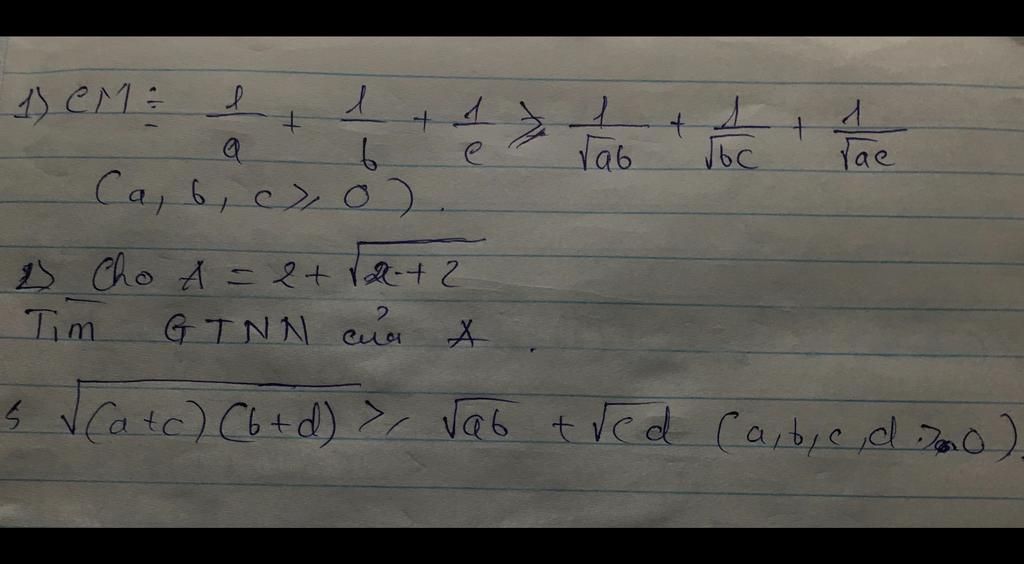 1) CM: 1/a + 1/b + 1/c ≥ 1/√ab + 1/√bc + 1/√ac
(a, b, c ≥ 0).
2) Cho A = 2 + √x+2
Tìm GTNN của A.
√(a+c)(b+d) ≥ √ab + √cd (a,b,c,d ≥ 0).